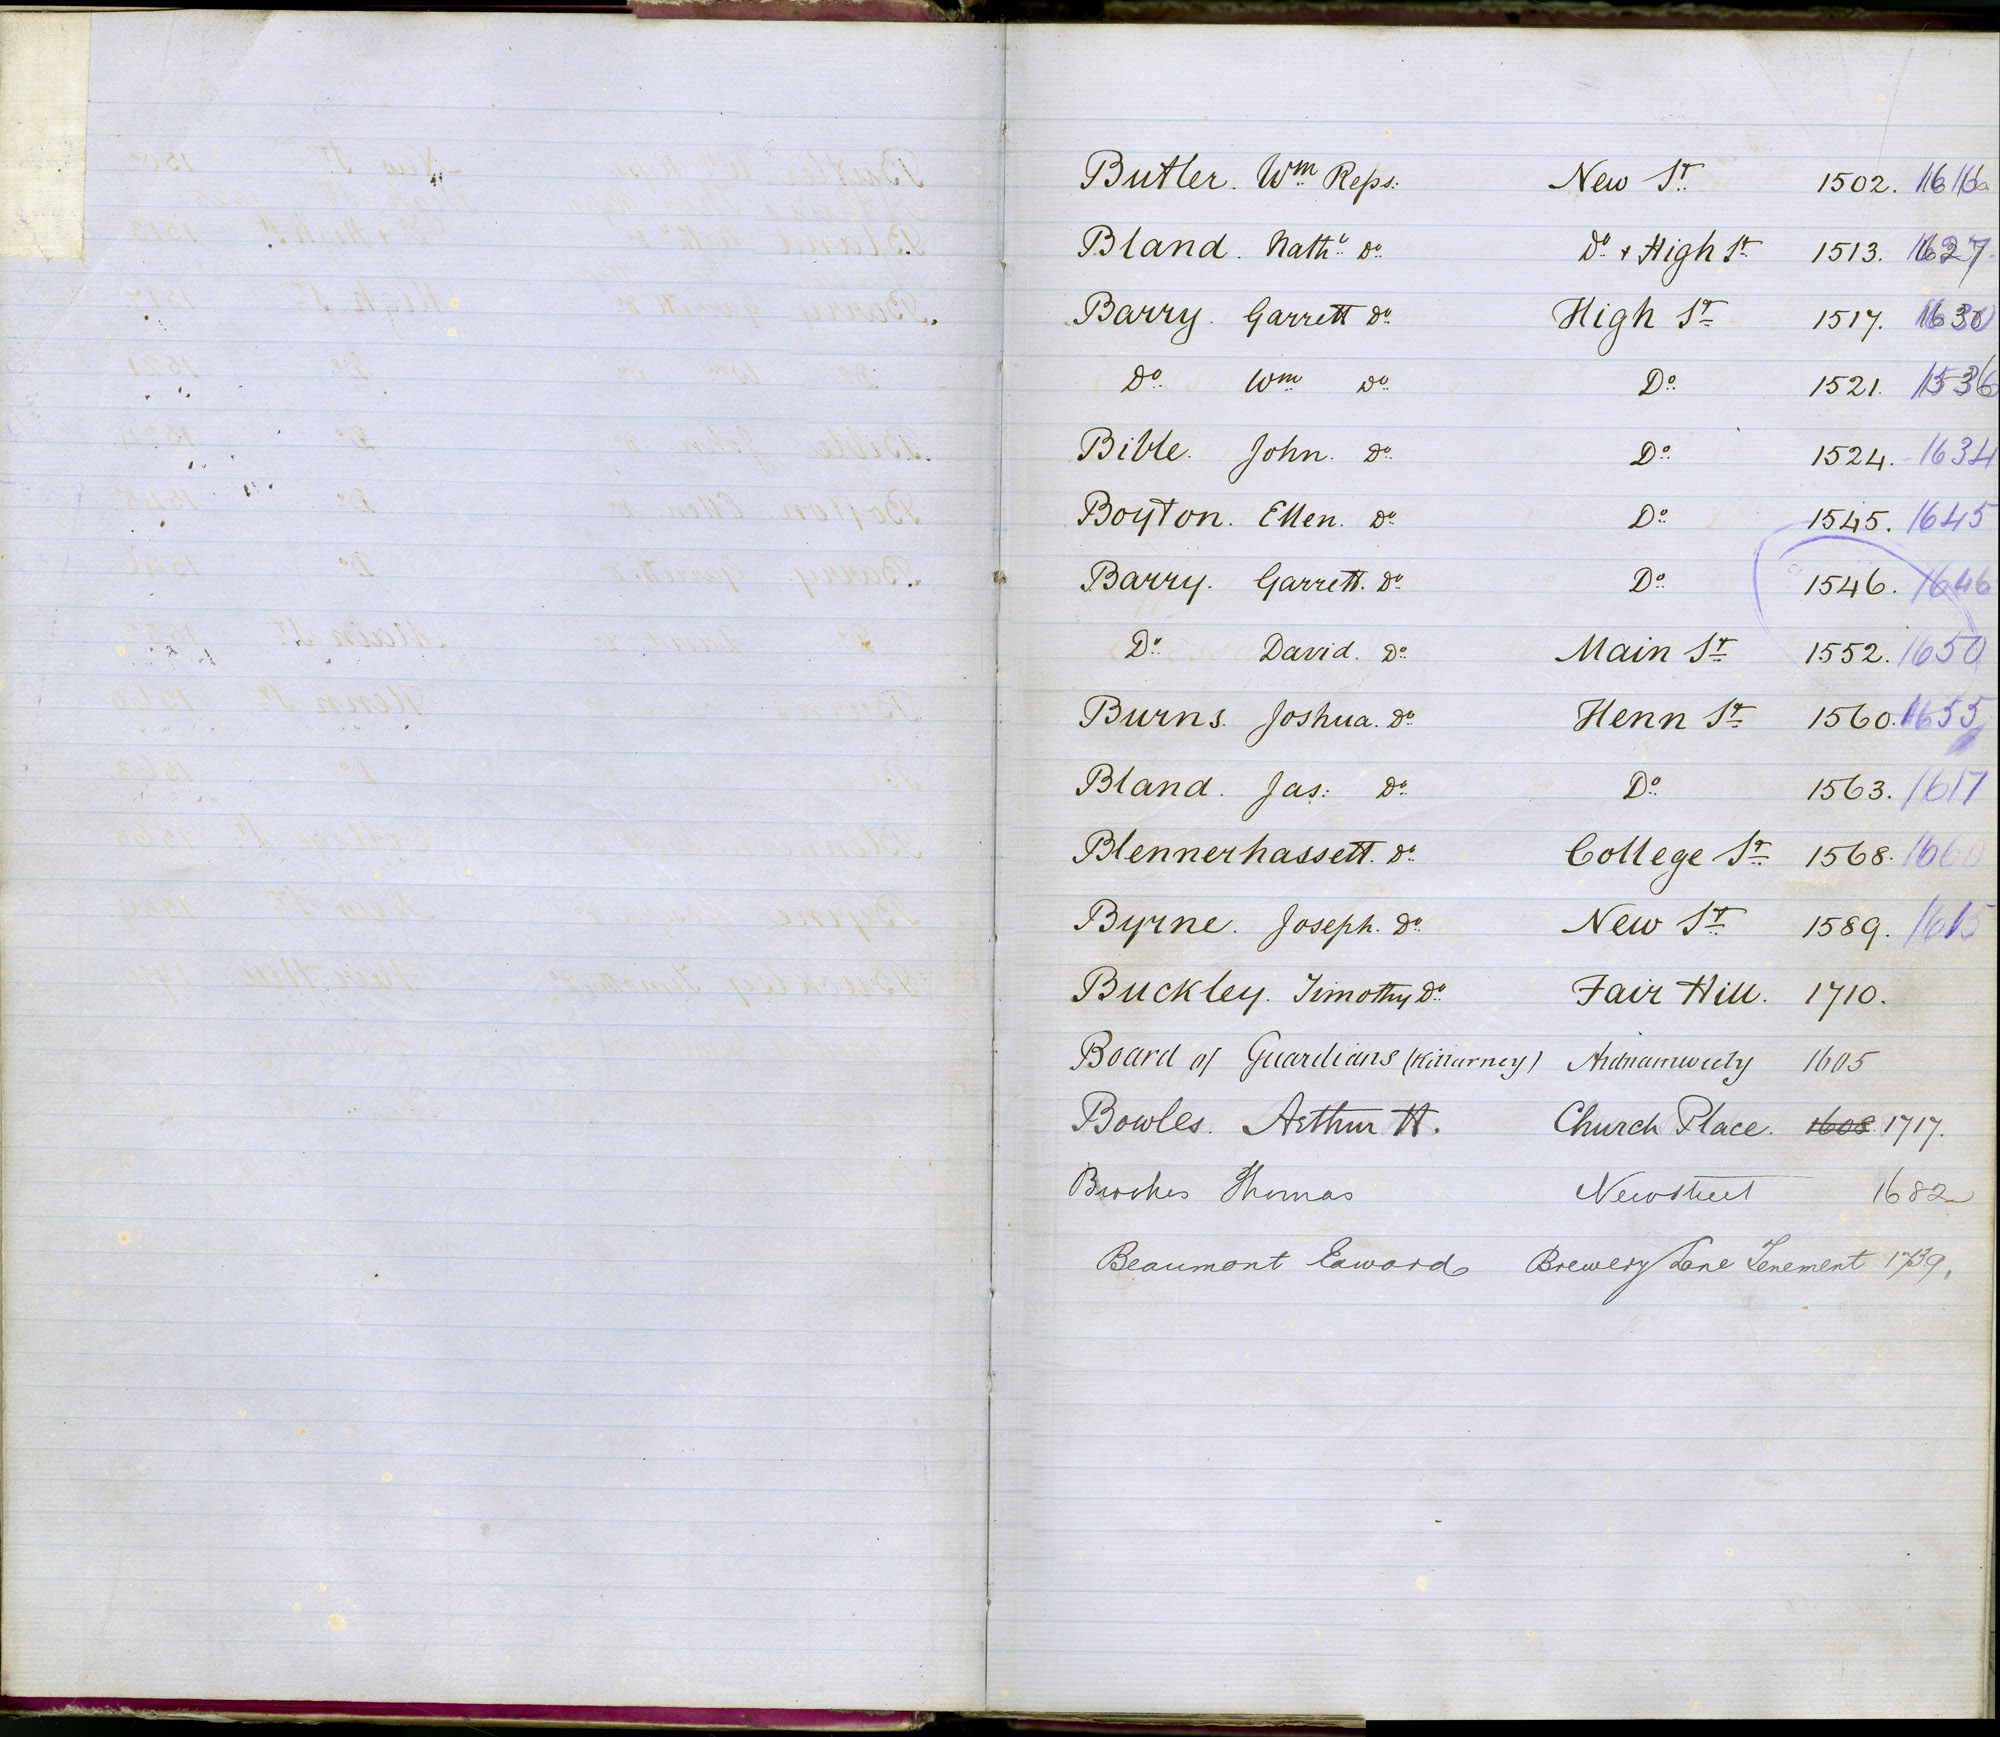 Butler. Wm Reps: New St 1502. 1616a
Bland. Nathl Do Do & High St 1513. 1627.
Barry. Garrett Do High St 1517. 1630
Do Wm Do Do 1521. 1536
Bible. John. Do Do 1524. 1634
Boyton. Ellen. Do Do 1545. 1645
Barry. Garrett. Do Do 1546. 1646
Do David. Do Main St 1552. 1650
Burns. Joshua. Do Henn St 1560. 1655
Bland. Jas: Do Do 1563. 1617
Blennerhassett. Do College St 1568. 1660
Byrne. Joseph. Do New St 1589. 1615
Buckley. Timothy Do Fair Hill. 1710.
Board of Guardians (Killarney) 1605
Bowles. Arthur H. Church Place. 1608 1717.
Thomas Newstreet 1682
Beaumont Edward Brewery Lane Tenement 1739.